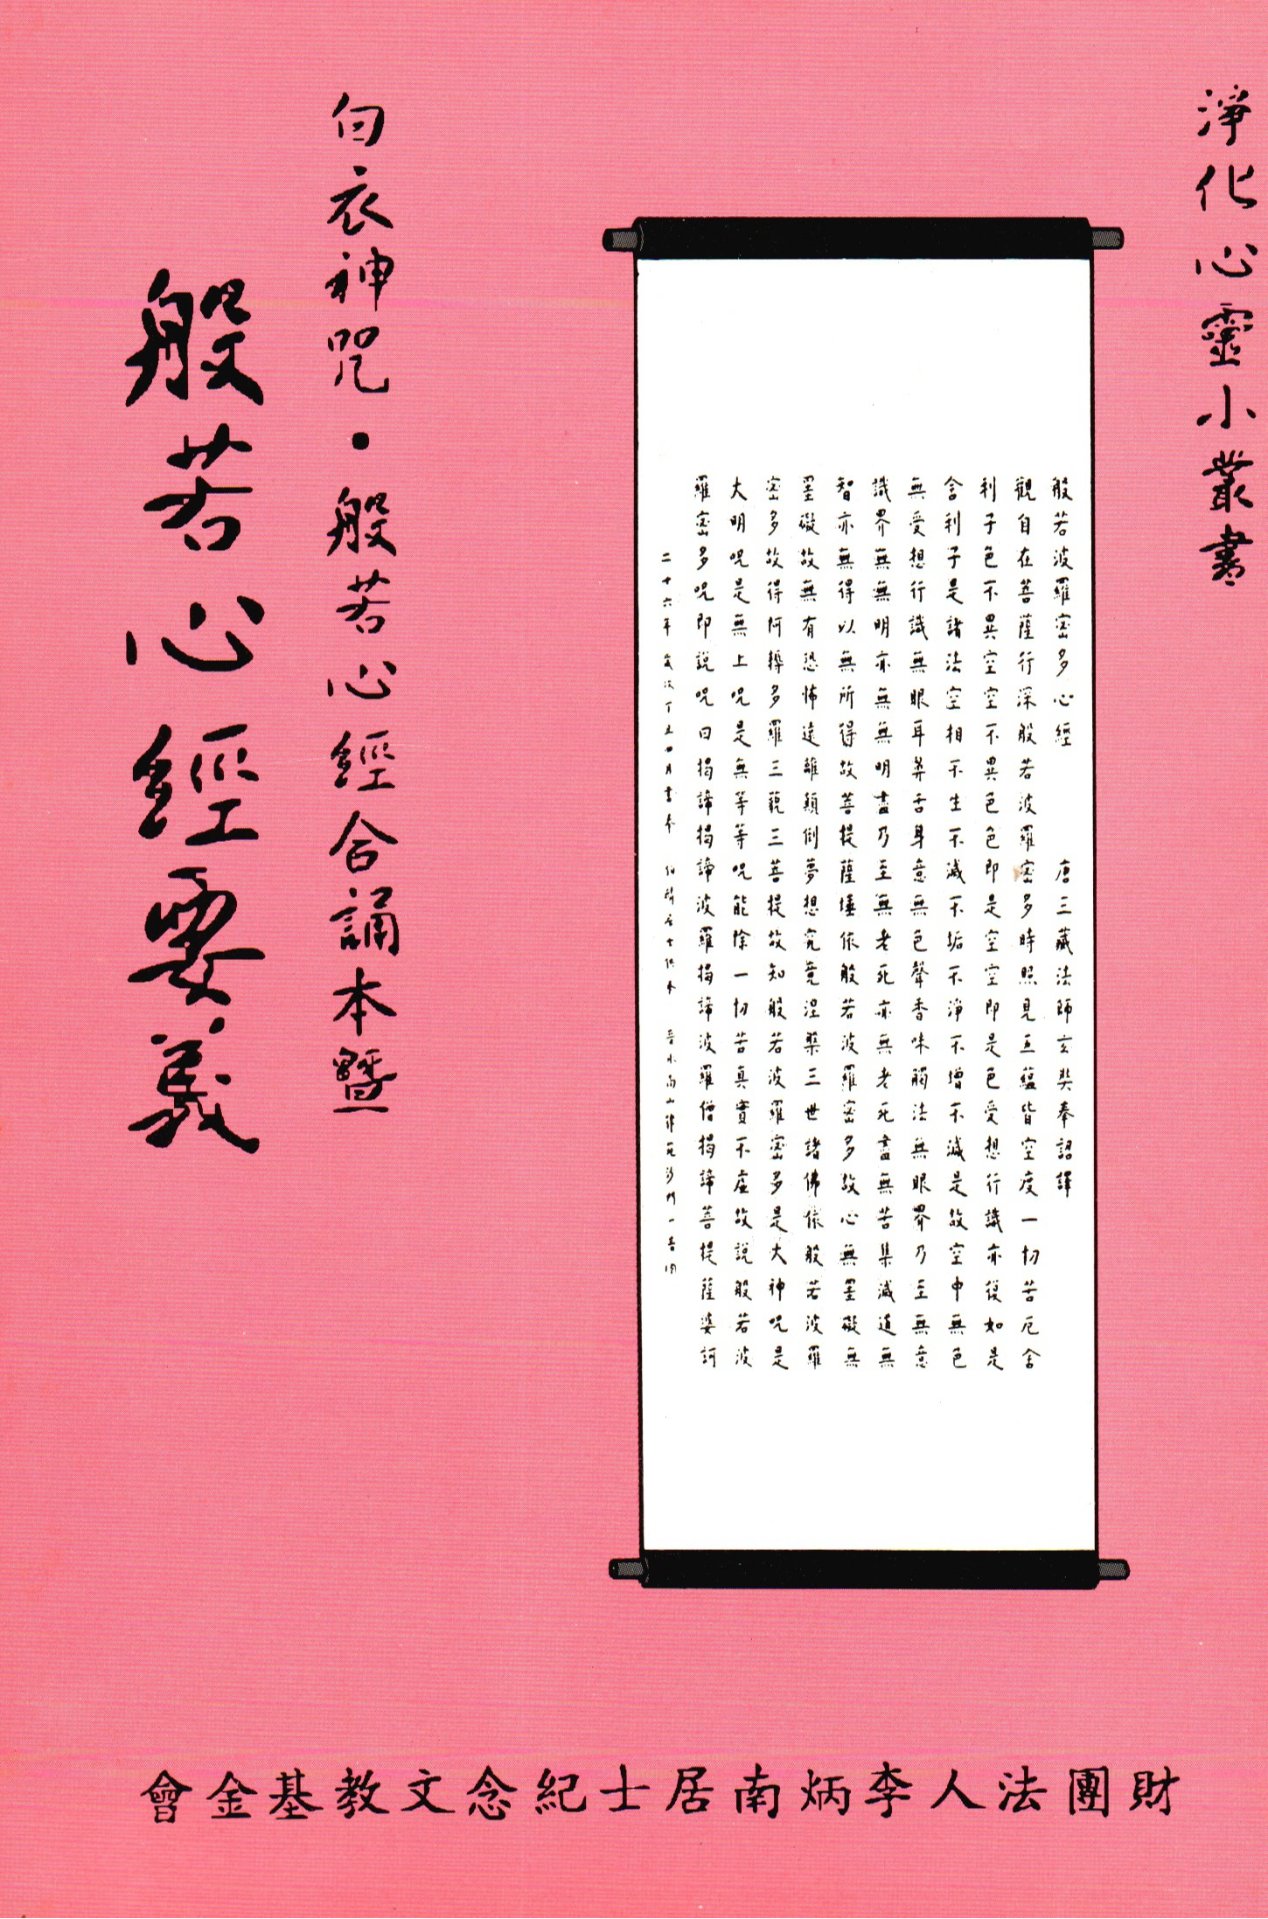 淨化心靈小叢書
般若波羅密多心經　唐三藏法師玄奘奉詔譯
觀自在菩薩行深般若波羅密多時照見五蘊皆空度一切苦厄舍
利子色不異空空不異色色即是空空即是色受想行識亦復如是
舍利子是諸法空相不生不滅不垢不淨不增不減是故空中無色
無受想行識無眼耳鼻舌身意無色聲香味觸法無眼界乃至無意
識界無無明亦無無明盡乃至無老死亦無老死盡無苦集滅道無
智亦無得以無所得故菩提薩埵依般若波羅密多故心無罣礙無
罣礙故無有恐怖遠離顛倒夢想究竟涅槃三世諸佛依般若波羅
密多故得阿耨多羅三藐三菩提故知般若波羅密多是大神呪是
大明呪是無上呪是無等等呪能除一切苦真實不虛故說般若波
羅密多呪即說呪曰揭諦揭諦波羅揭諦波羅僧揭諦菩提薩婆訶
二十六年歲次丁丑四月書奉　居士供養　晉水南山律苑沙門一音
白衣神咒・般若心經合誦本暨
般若心經要義
財團法人李炳南居士紀念文教基金會